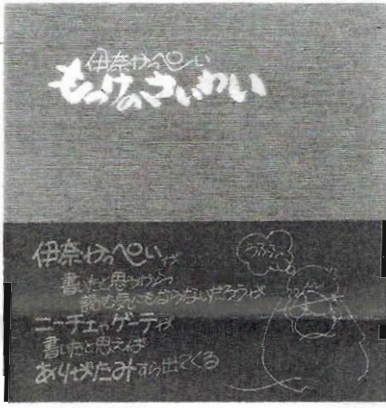 伊奈かっぺい
もつけのさいわい
伊奈かっぺいが
書いたと思うから
読む気にもならないだろうが
ニーチェやゲーテが
書いたと思えば
ありがたみすら出てくる
うふふ